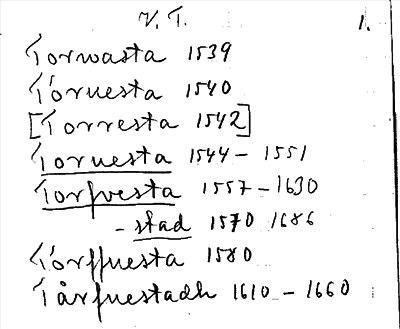 V. T. 1.
Torwasta 1539
Tóruesta 1540
[Torresta 1542]
Toruesta 1544 – 1551
Torfvesta 1557 – 1630
- stad 1570 1686
Tórffuesta 1580
Tårfuestadh 1610 – 1660